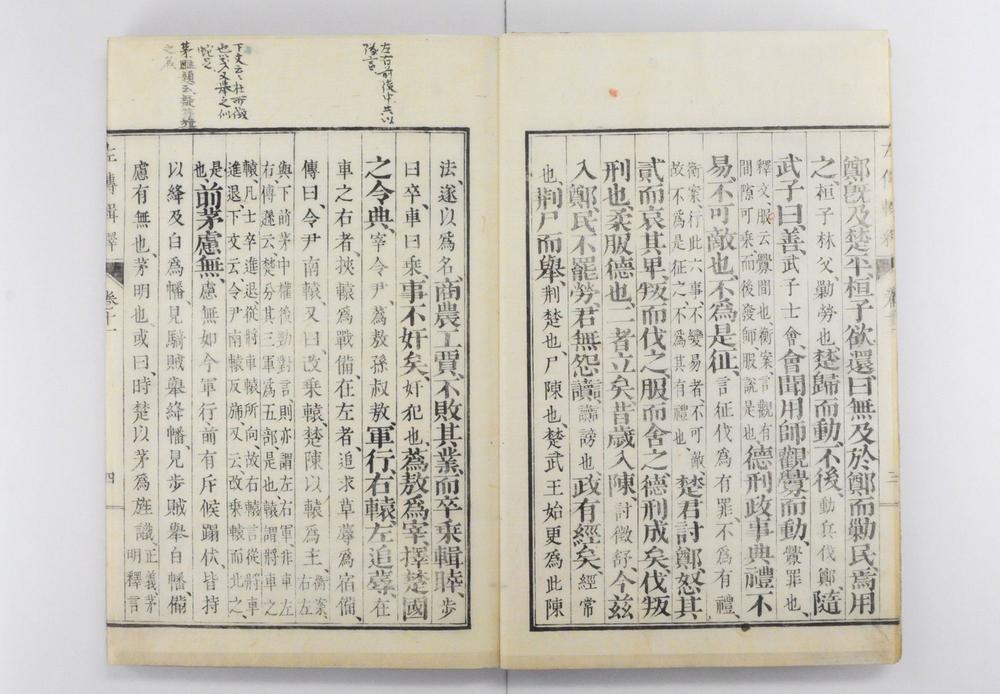 鄭旣及楚平、桓子欲還曰無及於鄭而勦民、焉用
之、桓子林父、勦勞也、楚歸而動、不後、動兵伐鄭、隨
武子曰、善、武子士會、會聞用師觀釁而動、釁罪也、
釋文、服云釁間也、衡案、言觀有
間隙可乘而後發、師服說是也、德刑政事典禮不
易、不可敵也、不爲是征、言征伐爲有罪、不爲有禮、
衡案行此六事、不變易者、不可敵、
故不爲是征之、不爲其有禮也、楚君討鄭、怒其
貳而哀其卑、叛而伐之、服而舍之、德刑成矣、伐叛
刑也、柔服德也、二者立矣、昔歲入陳、討徵舒、今茲
入鄭、民不罷勞、君無怨讟、讟謗也、政有經矣、經常
也、荆尸而舉、荆楚也、尸陳也、楚武王始更爲此陳
三
左右前後中共以
法、遂以爲名、商農工賈、不敗其業、而卒乘輯睦、步
曰卒、車曰乘、事不奸矣、奸犯也、蒍敖爲宰、擇楚國
之令典、宰令尹、蒍敖孫叔敖、軍行、右轅、左追蓐、在
車之右者、挾轅爲戰備、在左者、追求草蓐爲宿備、
傳曰、令尹南轅、又曰、改乘轅、楚陳以轅爲主、衡案、
右左
與下前茅中權後勁對言、則亦謂左右軍、非車左
右、傳云楚分其三軍爲五部是也、轅謂將車之
轅、凡士卒進退、從將車轅所向、故右轅言從將車
進退、下文云令尹南轅反旆、又云改乘轅而北之、
是
也、前茅慮無、慮無如今軍行、前有斥候蹋伏、皆持
以絳及白爲幡、見騎賊舉絳幡、見步賊舉白幡、備
慮有無也、茅明也、或曰、時楚以茅爲旌識、正義、茅
明釋言
左傳輯釋 卷十一 四